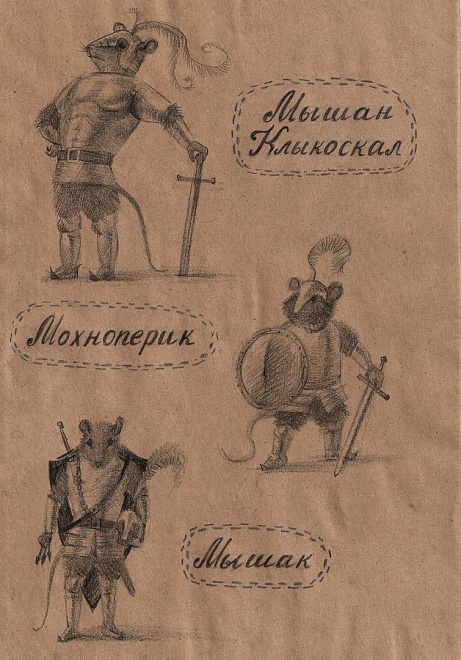 Мышан
Клыкоскал
Мохноперик
Мышак